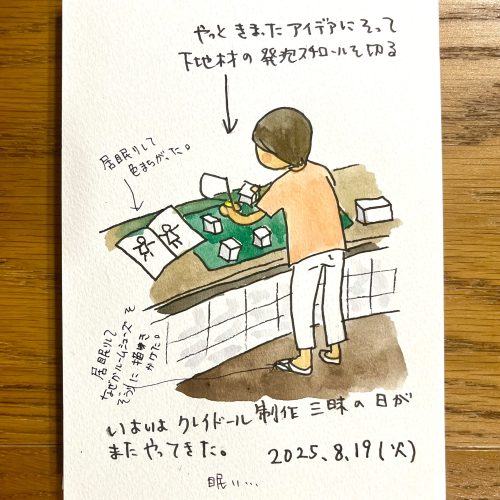 やっときまったアイデアにそって
下地材の発泡スチロールを切る
居眠りして
色まちがった。
居眠りして
なぜかルームシューズを
ぞうりに描き
かけた。
いよいよ クレイドール制作三昧の日が
またやってきた。
2025.8.19(火)
眠い…